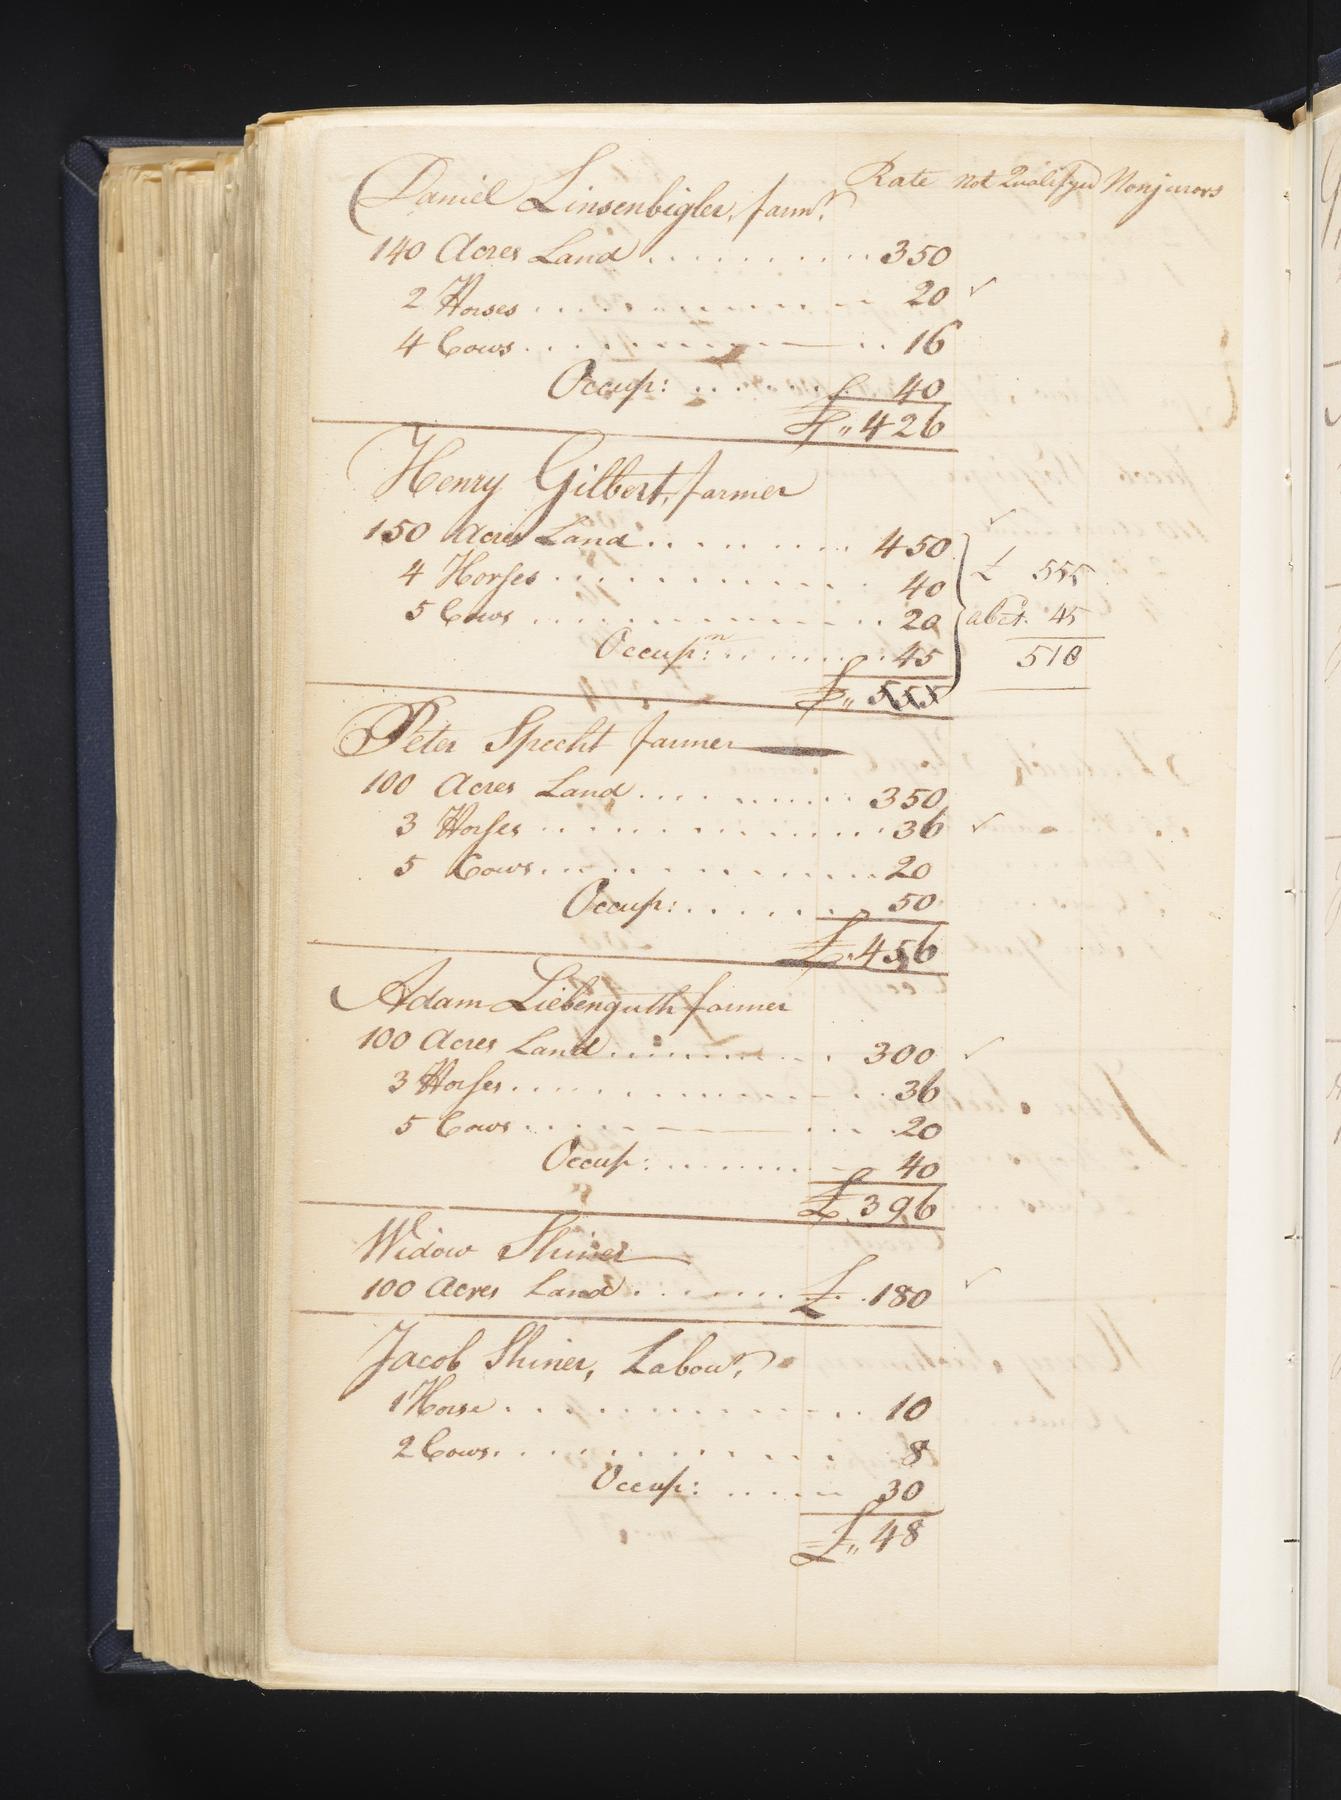 Rate Not Qualifyed Nonjurors
Daniel Linsenbigler, farmr.
140 Acres Land .......... 350
2 Horses .......... 20 ✓
4 Cows .......... 16
Occup: ...... £ 40
£ „ 426
Henry Gilbert, farmer
✓
150 Acres Land .......... 450
4 Horses .......... 40 £ 555
5 Cows .......... 20 abt. 45
Occupn: .......... 45 510
£ „ 555
Peter Specht farmer
100 Acres Land .......... 350
3 Horses .......... 36 ✓
5 Cows .......... 20
Occup: ...... 50
£ . 456
Adam Liebenguth farmer
100 Acres Land .......... 300 ✓
3 Horses .......... 36
5 Cows .......... 20
Occup: .......... 40
£ . 396
Widow Shiner
100 Acres Land .......... £ . 180 ✓
Jacob Shiner, Labour.
1 Horse .......... 10
2 Cows .......... 8
Occup: ...... 30
£ „ 48